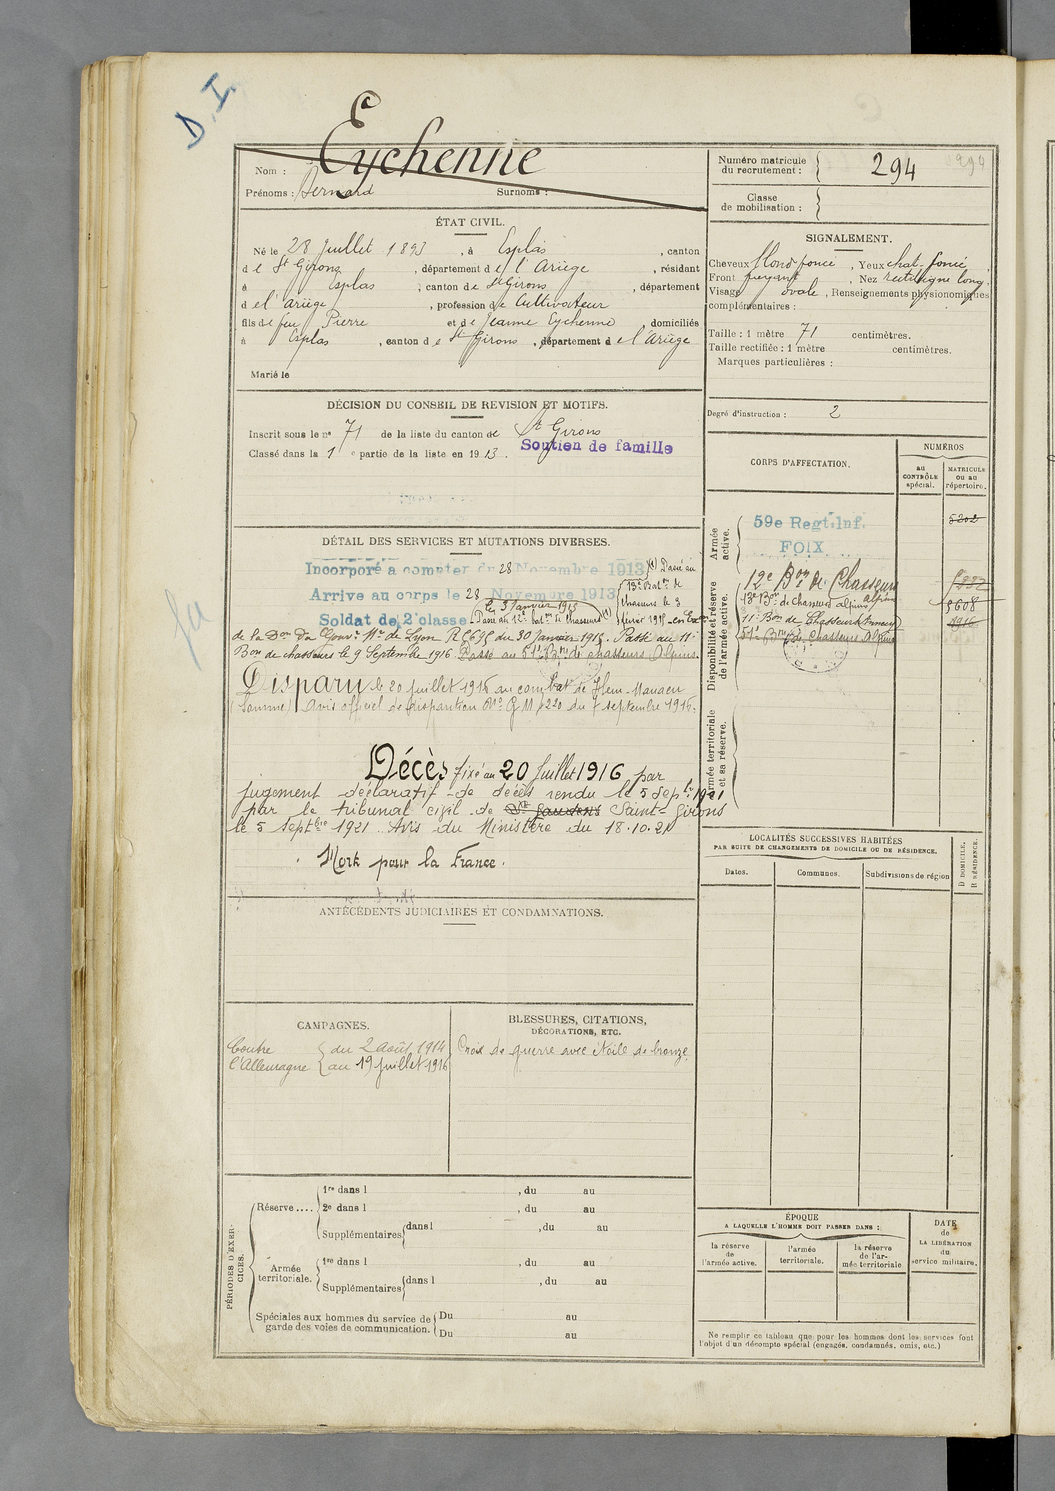 D. I.
Nom : Eychenne
Prénoms : Bernard Surnoms :
Numéro matricule du recrutement : 294
Classe de mobilisation :
ÉTAT CIVIL.
Né le 28 Juillet 1893, à Esplas, canton
de St Girons, département de l'Ariège, résidant
à Esplas, canton de St Girons, département
de l'Ariège, profession de Cultivateur
fils de feu Pierre et de Jeanne Eychenne, domiciliés
à Esplas, canton de St Girons, département de l'Ariège
Marié le
SIGNALEMENT.
Cheveux blond foncé, Yeux chat. foncé,
Front fuyant, Nez rectiligne long.
Visage ovale, Renseignements physionomiques
complémentaires :
Taille : 1 mètre 71 centimètres.
Taille rectifiée : 1 mètre centimètres.
Marques particulières :
Degré d'instruction : 2
DÉCISION DU CONSEIL DE REVISION ET MOTIFS.
Inscrit sous le n° 71 de la liste du canton de St Girons
Classé dans la 1e partie de la liste en 1913.
Soutien de famille
DÉTAIL DES SERVICES ET MUTATIONS DIVERSES.
Incorporé à compter du 28 Novembre 1913
Arrivé au corps le 28 Novembre 1913
Soldat de 2e classe
le 3 Janvier 1915
Passé au 12e bat. de Chasseurs (1)
(1) Passé au
13e Batn. de
chasseurs le 3
février 1915 - en
de la Don Du Gouvr Mre de Lyon R du 30 Janvier 1915. Passé au 11e
Bon de chasseurs le 9 Septembre 1916 Passé au 51e Bn de chasseurs Alpins.
Disparu le 20 juillet 1916 au combat de Hem-Monacu
(Somme) Avis officiel de disparition du 7 septembre 1916.
Décès fixé au 20 Juillet 1916 par
jugement déclaratif de décès rendu le 5 septbre 1921
par le tribunal civil de St Gaudens Saint-Girons
le 5 Septbre 1921 Avis du Ministère du 18.10.21
Mort pour la France.
CORPS D'AFFECTATION.
NUMÉROS
au CONTRÔLE spécial.
MATRICULE OU AU répertoire.
Armée active.
59e Regt. Inf.
FOIX
5202
Disponibilité et réserve de l'armée active.
12e Bon de Chasseurs alpins
13e Bon de chasseurs alpins 5608
11e Bon de Chasseurs 4916
51e Bn de Chasseurs Alpins
Armée territoriale et sa réserve.
LOCALITÉS SUCCESSIVES HABITÉES
PAR SUITE DE CHANGEMENTS DE DOMICILE OU DE RÉSIDENCE.
Dates.
Communes.
Subdivisions de région
D DOMICILE.
R RÉSIDENCE.
ANTÉCÉDENTS JUDICIAIRES ET CONDAMNATIONS.
CAMPAGNES.
Contre l'Allemagne
du 2 Août 1914
au 19 juillet 1916
BLESSURES, CITATIONS,
DÉCORATIONS, ETC.
Croix de guerre avec étoile de bronze
PÉRIODES D'EXERCICES.
Réserve....
1re dans l , du au
2e dans l , du au
Supplémentaires dans l , du au
Armée territoriale.
1re dans l , du au
Supplémentaires dans l , du au
Spéciales aux hommes du service de
garde des voies de communication.
Du au
Du au
ÉPOQUE
A LAQUELLE L'HOMME DOIT PASSER DANS :
la réserve de l'armée active.
l'armée territoriale.
la réserve de l'armée territoriale
DATE de LA LIBÉRATION du service militaire.
Ne remplir ce tableau que pour les hommes dont les services font
l'objet d'un décompte spécial (engagés, condamnés, omis, etc.)